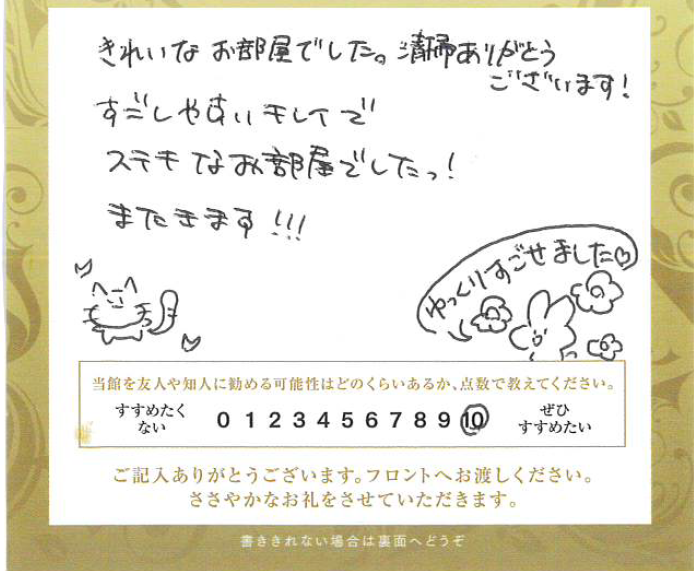 きれいな お部屋でした。清掃ありがとう
ございます!
すごしやすいキレイで
ステキなお部屋でしたっ!
またきます!!!
ゆっくりすごせました♡
当館を友人や知人に勧める可能性はどのくらいあるか、点数で教えてください。
すすめたく
ない
0 1 2 3 4 5 6 7 8 9 10
ぜひ
すすめたい
ご記入ありがとうございます。フロントへお渡しください。
ささやかなお礼をさせていただきます。
書ききれない場合は裏面へどうぞ